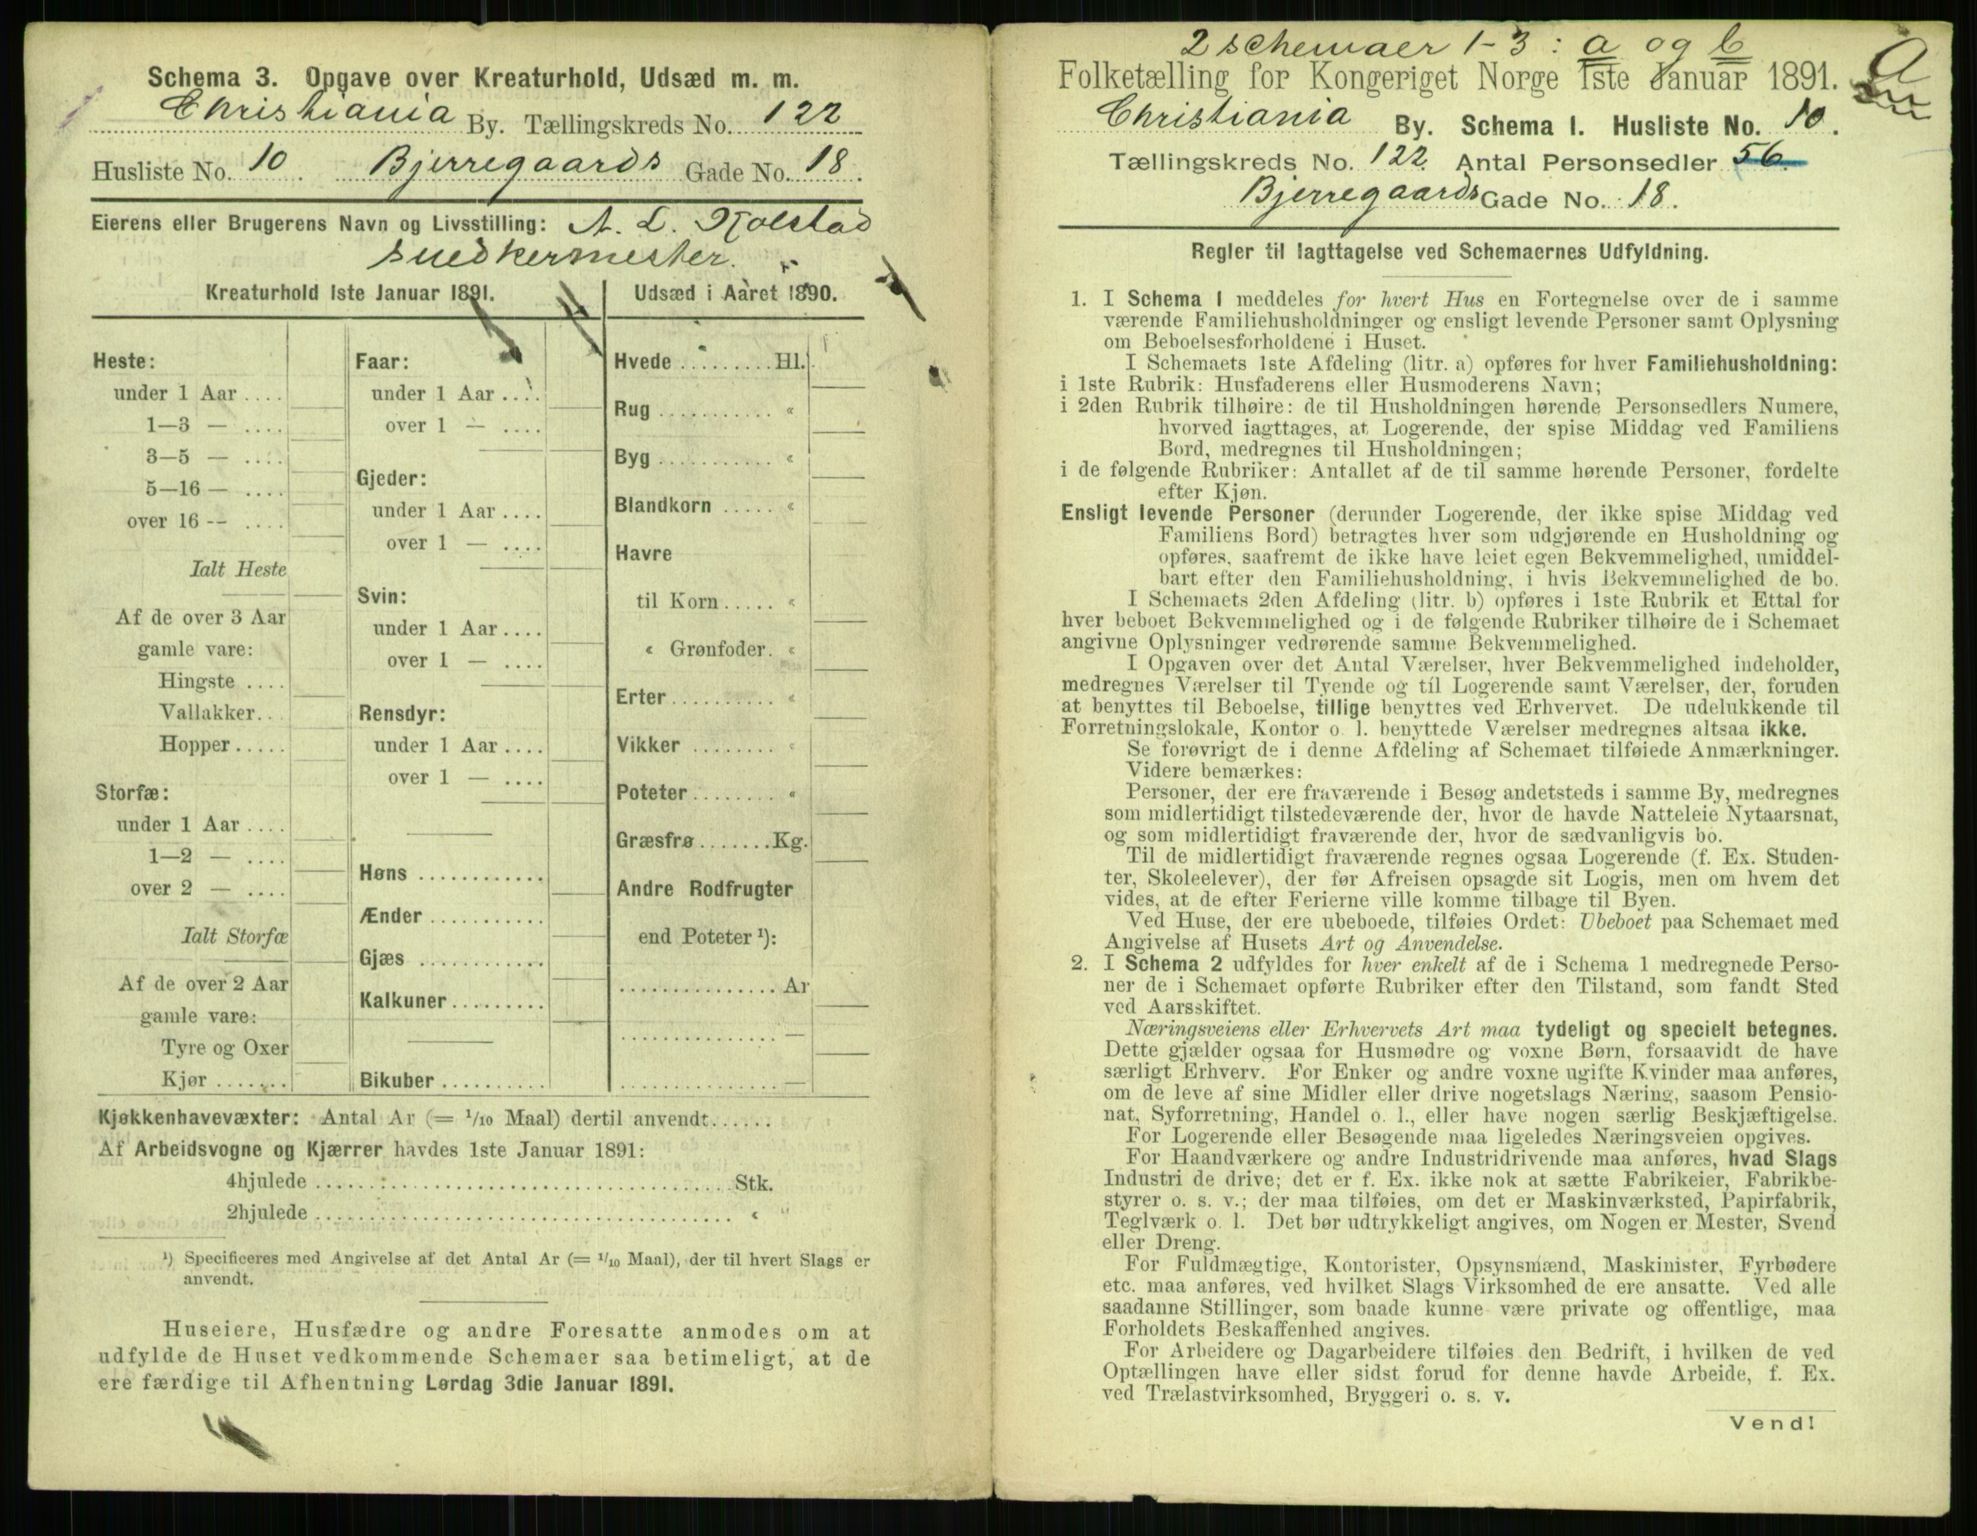 Schema 3. Opgave over Kreaturhold, Udsæd m. m.
Christiania By. Tællingskreds No. 122
Husliste No. 10. Bjerregaards Gade No. 18.
Eierens eller Brugerens Navn og Livsstilling: A. L. Kolstad
snedkermester.
Kreaturhold 1ste Januar 1891.
Heste:
under 1 Aar ....
1—3 — ....
3—5 — ....
5—16 — ....
over 16 -- ....
Ialt Heste
Af de over 3 Aar
gamle vare:
Hingste ....
Vallakker...
Hopper.....
Storfæ:
under 1 Aar ....
1—2 — ....
over 2 — ....
Ialt Storfæ
Af de over 2 Aar
gamle vare:
Tyre og Oxer
Kjør .......
Faar:
under 1 Aar ....
over 1 — ....
Gjeder:
under 1 Aar ....
over 1 — ....
Svin:
under 1 Aar ....
over 1 — ....
Rensdyr:
under 1 Aar ....
over 1 — ....
Høns ............
Ænder ...........
Gjæs ............
Kalkuner.........
Bikuber ..........
Udsæd i Aaret 1890.
Hvede .........Hl.
Rug ........... «
Byg ........... «
Blandkorn ..... «
Havre
til Korn ..... «
« Grønfoder. «
Erter.......... «
Vikker ........ «
Poteter........ «
Græsfrø.......Kg.
Andre Rodfrugter
end Poteter ¹):
...............Ar
............... —
............... —
Kjøkkenhavevæxter: Antal Ar (= 1/10 Maal) dertil anvendt......
Af Arbeidsvogne og Kjærrer havdes 1ste Januar 1891:
4hjulede ........................................Stk.
2hjulede ........................................ «
¹) Specificeres med Angivelse af det Antal Ar (= 1/10 Maal), der til hvert Slags er
anvendt.
Huseiere, Husfædre og andre Foresatte anmodes om at
udfylde de Huset vedkommende Schemaer saa betimeligt, at de
ere færdige til Afhentning Lørdag 3die Januar 1891.
2 schemaer 1-3: a og b
Folketælling for Kongeriget Norge 1ste Januar 1891.
Christiania By. Schema I. Husliste No. 10.
Tællingskreds No. 122 Antal Personsedler 56.
Bjerregaards Gade No. 18.
Regler til Iagttagelse ved Schemaernes Udfyldning.
1. I Schema I meddeles for hvert Hus en Fortegnelse over de i samme
værende Familiehusholdninger og ensligt levende Personer samt Oplysning
om Beboelsesforholdene i Huset.
I Schemaets 1ste Afdeling (litr. a) opføres for hver Familiehusholdning:
i 1ste Rubrik: Husfaderens eller Husmoderens Navn;
i 2den Rubrik tilhøire: de til Husholdningen hørende Personsedlers Numere,
hvorved iagttages, at Logerende, der spise Middag ved Familiens
Bord, medregnes til Husholdningen;
i de følgende Rubriker: Antallet af de til samme hørende Personer, fordelte
efter Kjøn.
Ensligt levende Personer (derunder Logerende, der ikke spise Middag ved
Familiens Bord) betragtes hver som udgjørende en Husholdning og
opføres, saafremt de ikke have leiet egen Bekvemmelighed, umiddel-
bart efter den Familiehusholdning, i hvis Bekvemmelighed de bo.
I Schemaets 2den Afdeling (litr. b) opføres i 1ste Rubrik et Ettal for
hver beboet Bekvemmelighed og i de følgende Rubriker tilhøire de i Schemaet
angivne Oplysninger vedrørende samme Bekvemmelighed.
I Opgaven over det Antal Værelser, hver Bekvemmelighed indeholder,
medregnes Værelser til Tyende og til Logerende samt Værelser, der, foruden
at benyttes til Beboelse, tillige benyttes ved Erhvervet. De udelukkende til
Forretningslokale, Kontor o. l. benyttede Værelser medregnes altsaa ikke.
Se forøvrigt de i denne Afdeling af Schemaet tilføiede Anmærkninger.
Videre bemærkes:
Personer, der ere fraværende i Besøg andetsteds i samme By, medregnes
som midlertidigt tilstedeværende der, hvor de havde Natteleie Nytaarsnat,
og som midlertidigt fraværende der, hvor de sædvanligvis bo.
Til de midlertidigt fraværende regnes ogsaa Logerende (f. Ex. Studen-
ter, Skoleelever), der før Afreisen opsagde sit Logis, men om hvem det
vides, at de efter Ferierne ville komme tilbage til Byen.
Ved Huse, der ere ubeboede, tilføies Ordet: Ubeboet paa Schemaet med
Angivelse af Husets Art og Anvendelse.
2. I Schema 2 udfyldes for hver enkelt af de i Schema 1 medregnede Perso-
ner de i Schemaet opførte Rubriker efter den Tilstand, som fandt Sted
ved Aarsskiftet.
Næringsveiens eller Erhvervets Art maa tydeligt og specielt betegnes.
Dette gjælder ogsaa for Husmødre og voxne Børn, forsaavidt de have
særligt Erhverv. For Enker og andre voxne ugifte Kvinder maa anføres,
om de leve af sine Midler eller drive nogetslags Næring, saasom Pensio-
nat, Syforretning, Handel o. l., eller have nogen særlig Beskjæftigelse.
For Logerende eller Besøgende maa ligeledes Næringsveien opgives.
For Haandværkere og andre Industridrivende maa anføres, hvad Slags
Industri de drive; det er f. Ex. ikke nok at sætte Fabrikeier, Fabrikbe-
styrer o. s. v.; der maa tilføies, om det er Maskinværksted, Papirfabrik,
Teglværk o. l. Det bør udtrykkeligt angives, om Nogen er Mester, Svend
eller Dreng.
For Fuldmægtige, Kontorister, Opsynsmænd, Maskinister, Fyrbødere
etc. maa anføres, ved hvilket Slags Virksomhed de ere ansatte. Ved alle
saadanne Stillinger, som baade kunne være private og offentlige, maa
Forholdets Beskaffenhed angives.
For Arbeidere og Dagarbeidere tilføies den Bedrift, i hvilken de ved
Optællingen have eller sidst forud for denne havde Arbeide, f. Ex.
ved Trælastvirksomhed, Bryggeri o. s. v.
Vend!